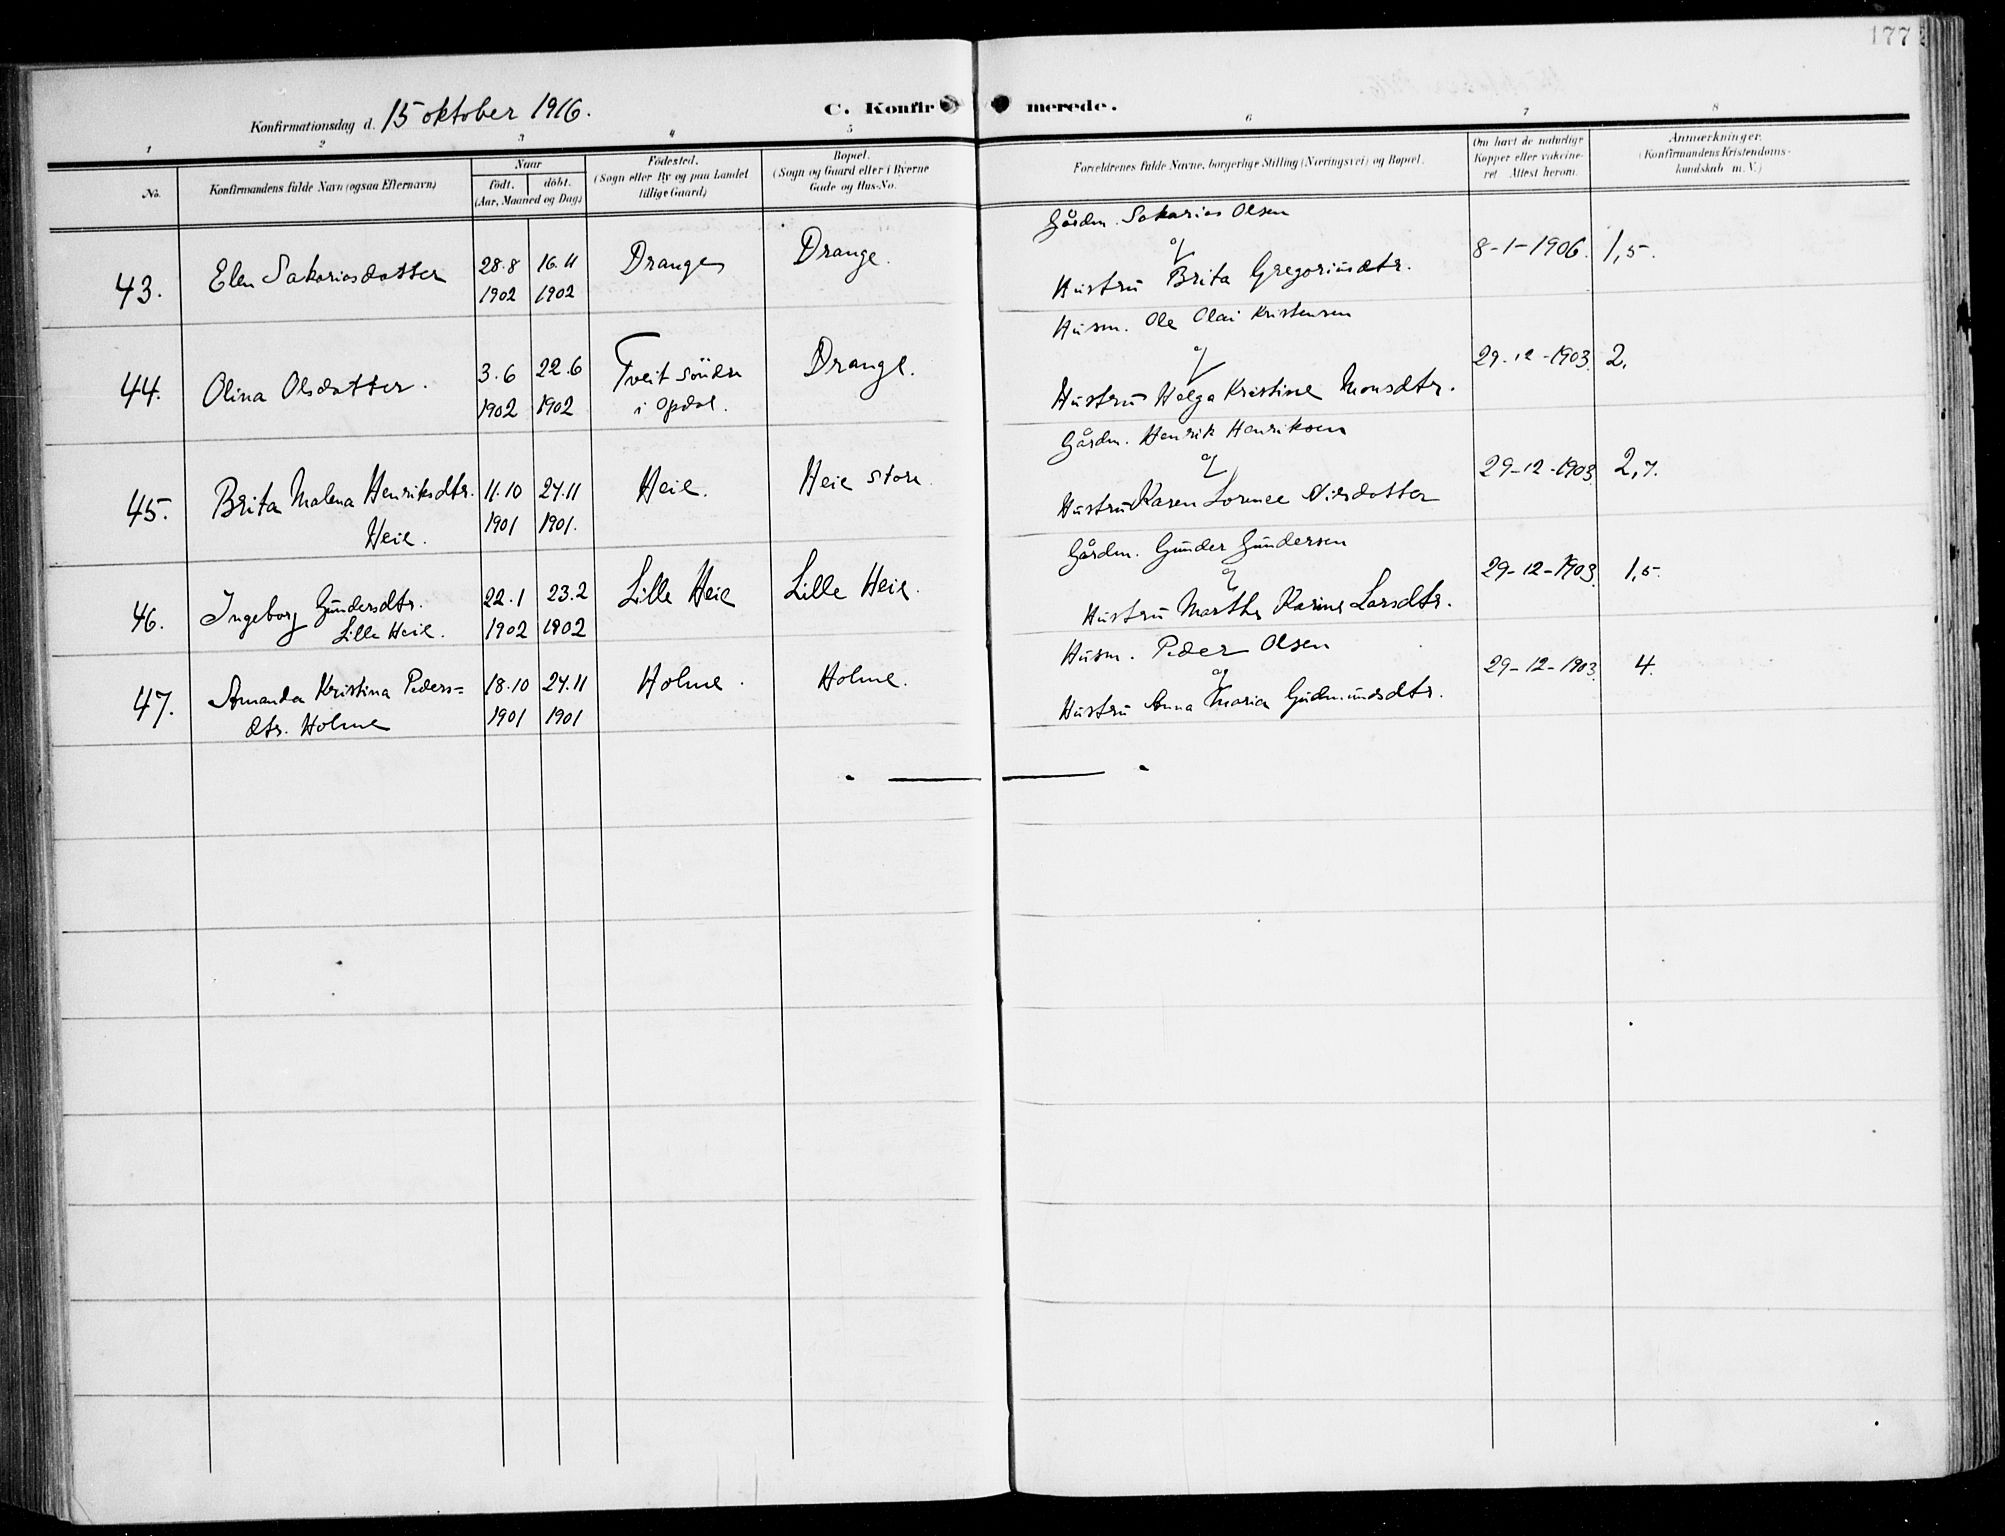 177
Konfirmationsdag d. 15 oktober 1916.
C. Konfirmerede.
1 2 3 4 5 6 7 8
No.
Konfirmandens fulde Navn (ogsaa Efternavn)
Naar
født. døbt.
(Aar, Maaned og Dag)
Fødested.
(Sogn eller By og paa Landet
tillige Gaard)
Bopæl.
(Sogn og Gaard eller i Byerne
Gade og Hus-No.
Forældrenes fulde Navne, borgerlige Stilling (Næringsvei) og Bopæl.
Om havt de naturlige
Kopper eller vakcine-
ret Attest herom.
Anmærkninger.
(Konfirmandens Kristendoms-
kundskab m. V.)
43. Elen Sakariasdatter 28.8 1902 16.11 1902 Drange Drange.
Gårdm. Sakarias Olsen
og
Hustru Brita Gregoriusdtr. 8-1-1906. 1,5.
44. Olina Olsdatter. 3.6 1902 22.6 1902 Tveit søndre
i Opdal. Drange.
Husm. Ole Olai Kristensen
og
Hustru Helga Kristine Monsdtr. 29-12-1903. 2.
45. Brita Malena Henriksdtr.
Heie. 11.10 1901 24.11 1901. Heie. Heie store
Gårdm. Henrik Henriksen
og
Hustru Karen Lornce Nilsdatter 29-12-1903. 2,7.
46. Ingeborg Gundersdtr.
Lille Heie. 22.1 1902 23.2 1902 Lille Heie Lille Heie.
Gårdm. Gunder Gundersen
og
Hustru Marthe Karine Larsdtr. 29-12-1903. 1,5.
47. Amanda Kristina Peders=
dtr. Holme 18.10 1901 24.11 1901 Holme. Holme.
Husm. Peder Olsen
og
Hustru Anna Maria Gudmundsdtr. 29-12-1903. 4.